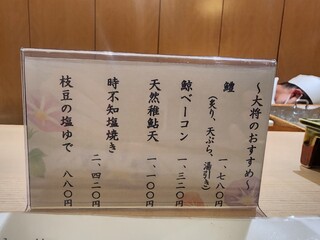 ～大将のおすすめ～
鱧
（炙り、天ぷら、湯引き）
一、七八〇円
鯨ベーコン 一、三二〇円
天然稚鮎天 一、一〇〇円
時不知塩焼き 二、四二〇円
枝豆の塩ゆで 八八〇円